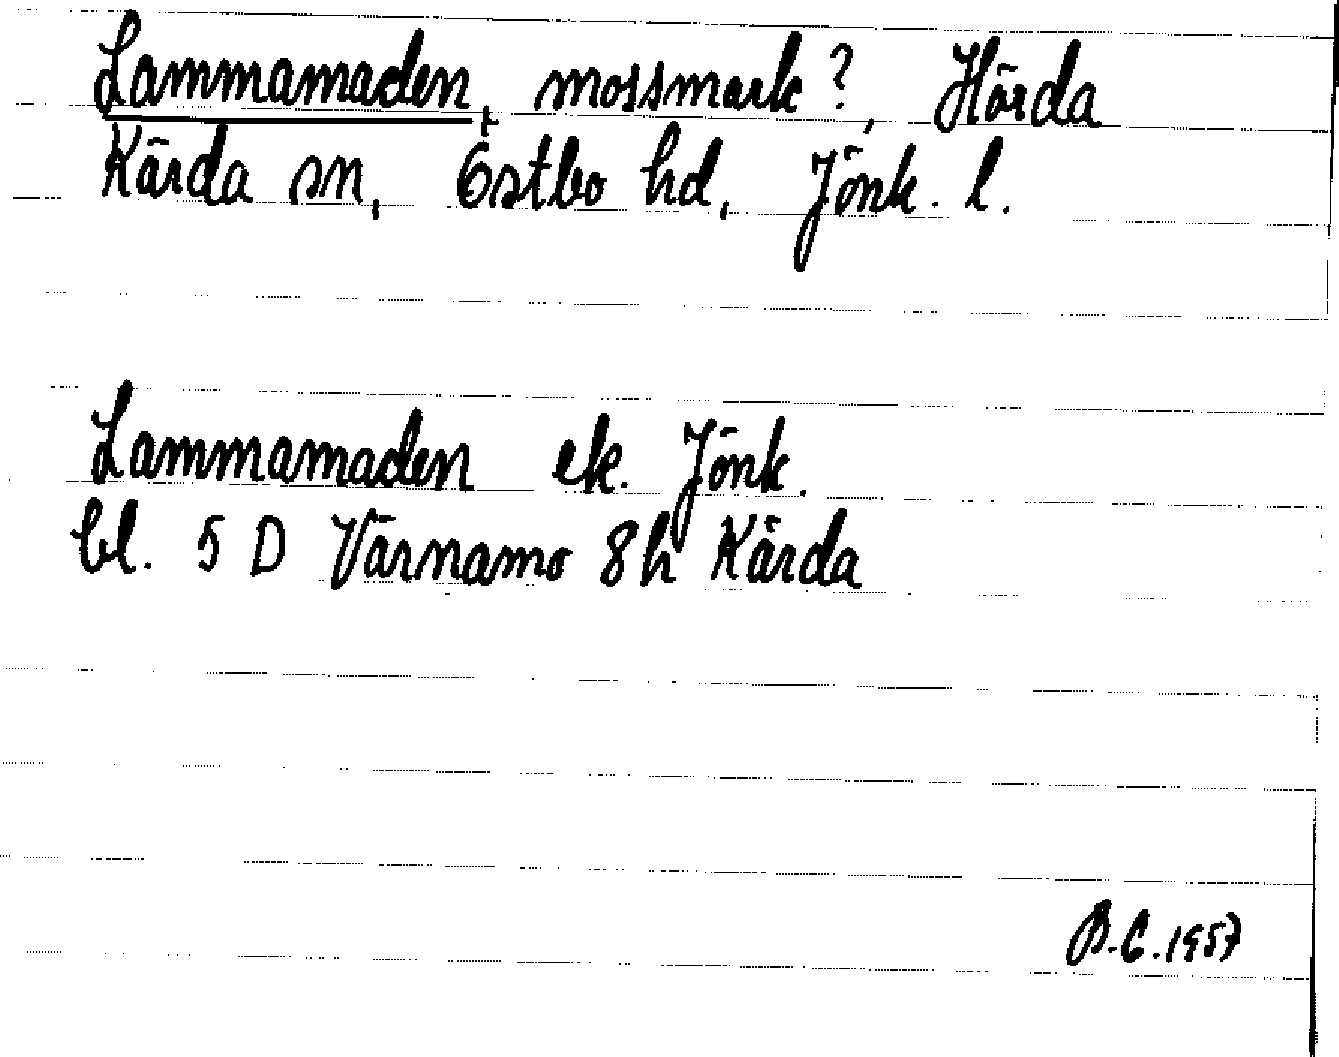 Lammamaden, mossmark?, Hörda
Kärda sn, Östbo hd, Jönk. l.
Lammamaden ek. Jönk.
bl. 5 D Värnamo 8h Kärda
B.C. 1957